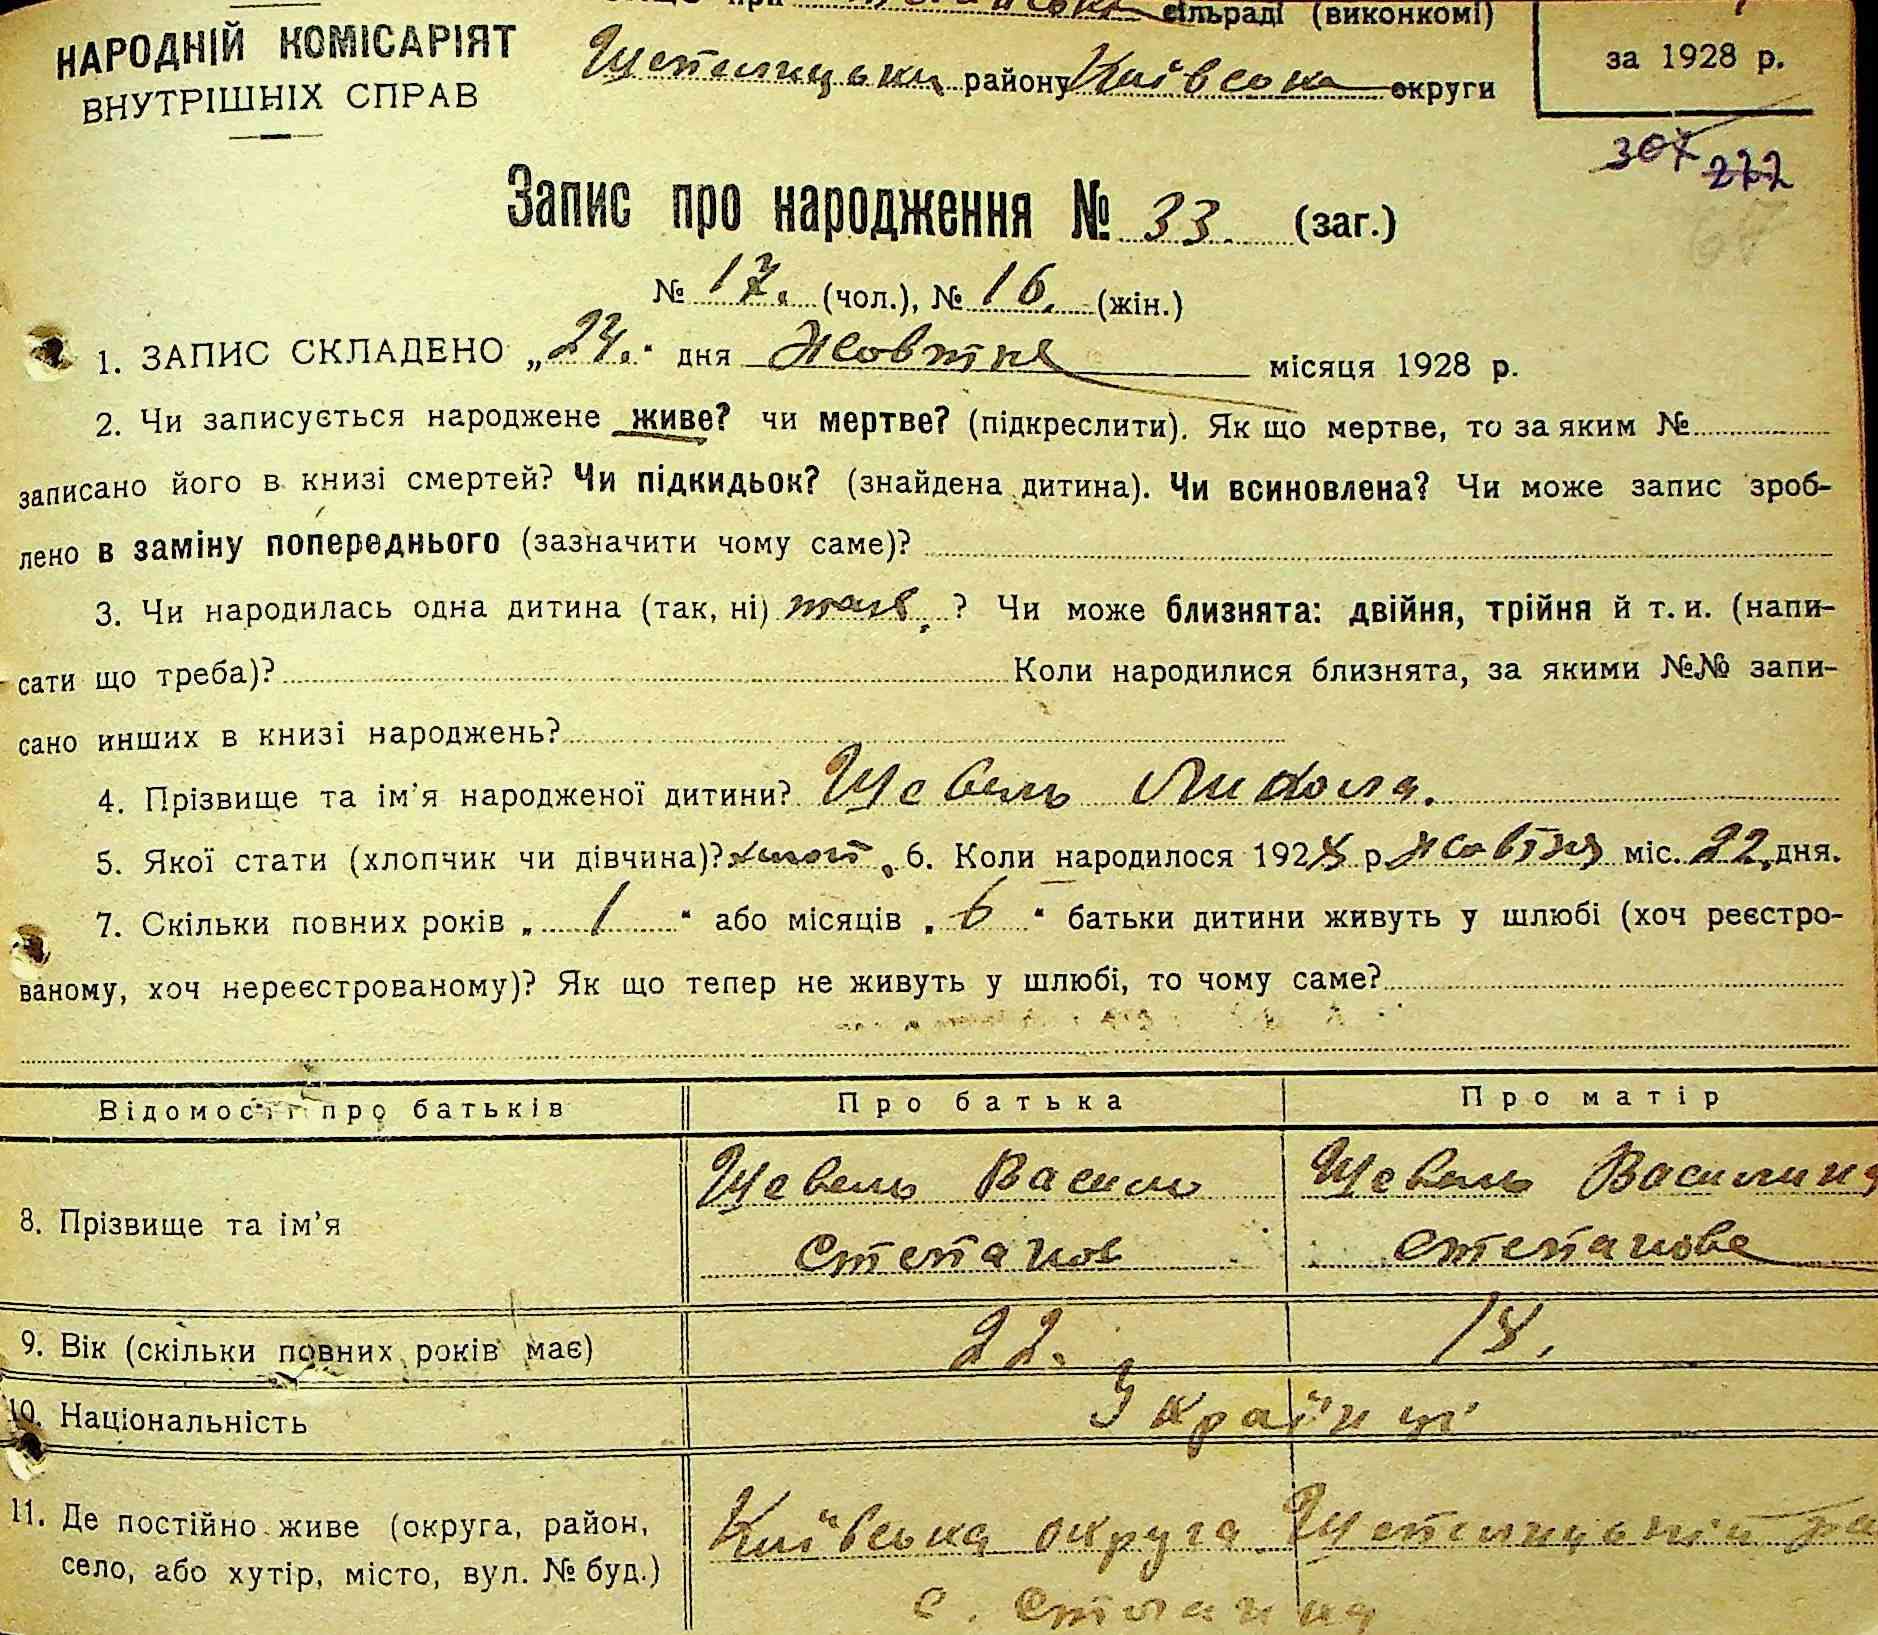 сільраді (виконкомі)
НАРОДНІЙ КОМІСАРІЯТ
ВНУТРІШНІХ СПРАВ
району Київська округи
за 1928 р.
307 222
Запис про народження № 33. (заг.)
№ 17. (чол.), № 16. (жін.)
1. ЗАПИС СКЛАДЕНО „24.“ дня Жовтня місяця 1928 р.
2. Чи записується народжене живе? чи мертве? (підкреслити). Як що мертве, то за яким №
записано його в книзі смертей? Чи підкидьок? (знайдена дитина). Чи всиновлена? Чи може запис зроб-
лено в заміну попереднього (зазначити чому саме)?
3. Чи народилась одна дитина (так, ні) так, ? Чи може близнята: двійня, трійня й т. и. (напи-
сати що треба)? Коли народилися близнята, за якими №№ запи-
сано инших в книзі народжень?
4. Прізвище та ім'я народженої дитини? Шевель Микола.
5. Якої стати (хлопчик чи дівчина)? хлоп. 6. Коли народилося 1928 р. жовтня міс. 22. дня.
7. Скільки повних років „ 1 “ або місяців „ 6 “ батьки дитини живуть у шлюбі (хоч реєстро-
ваному, хоч нереєстрованому)? Як що тепер не живуть у шлюбі, то чому саме?
Відомості про батьків Про батька Про матір
8. Прізвище та ім'я Шевель Василь Шевель Василина
Степанов Степанове
9. Вік (скільки повних років має) 22. 18.
10. Національність Україн ці
11. Де постійно живе (округа, район, Київська округа
село, або хутір, місто, вул. № буд.) с.